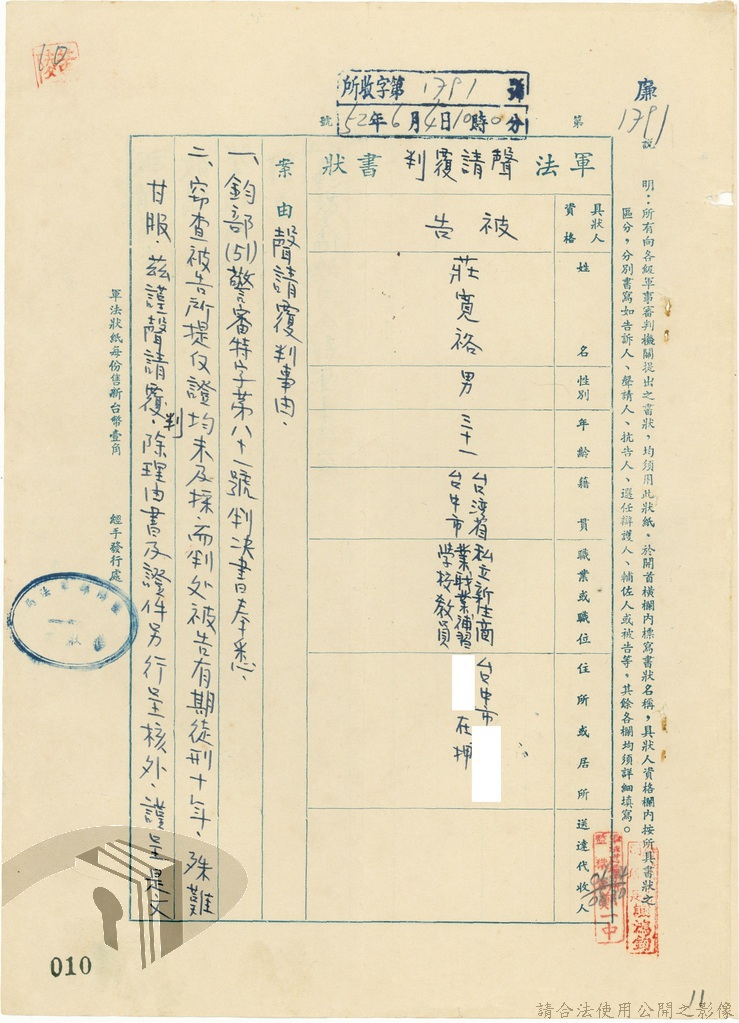 廉
1791
說明：所有向各級軍事審判機關提出之書狀，均須用此狀紙，於開首橫欄內標寫書狀名稱，具狀人資格欄內按所具書狀之
區分，分別書寫如告訴人、聲請人、抗告人、選任辯護人、輔佐人或被告等，其餘各欄均須詳細填寫。
所收字第1791號
52年6月4日10時0分
第
號
軍法聲請覆判書狀
具狀人資格
姓名
性別
年齡
籍貫
職業或職位
住所或居所
送達代收人
被告
莊寬裕
男
三十一
台灣省
台中市
私立新生商
業職業補習
學校教員
台中市
在押
案由
聲請覆判事由．
一、鈞部(51)警審特字第八十一號判決書奉悉．
二、窃查被告所提反證均未及採而判处被告有期徒刑十年．殊難
甘服．茲謹聲請覆判．除理由書及證件另行呈核外．謹呈是文
軍法狀紙每份售新台幣壹角
經手發行處
010
11
請合法使用公開之影像